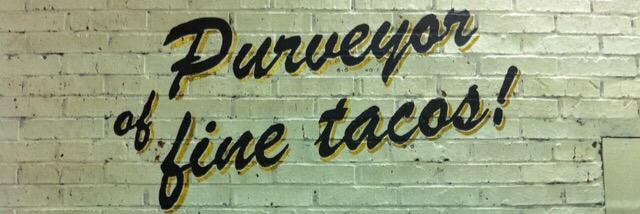 Purveyor
of fine tacos!